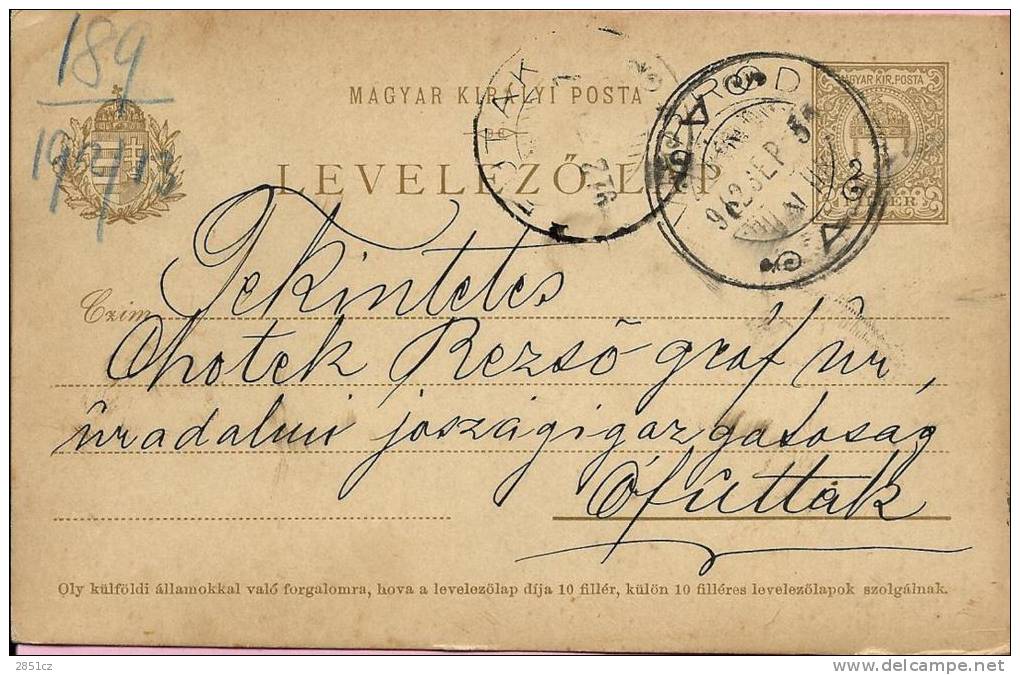 189
MAGYAR KIRÁLYI POSTA
MAGYAR KIR. POSTA
LEVELEZŐ-LAP
FILLÉR
Tekintetes
Czim
Chotek Rezső gróf úr,
uradalmi jószágigazgatoság
Ófuttak
Oly külföldi államokkal való forgalomra, hova a levelezőlap díja 10 fillér, külön 10 filléres levelezőlapok szolgálnak.
2851cz
http://www.delcampe.net